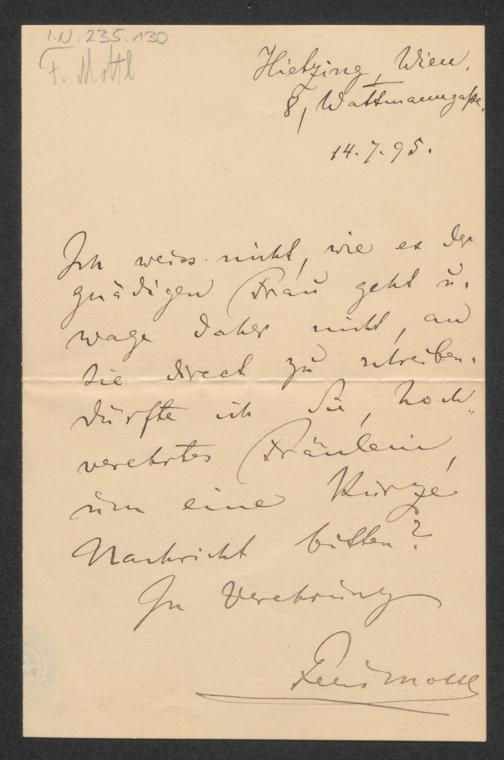 I.N. 235.130
F. Mottl
Hietzing, Wien.
8, Wattmanngaße.
14.7.95.
Ich weiss nicht, wie es der
gnädigen Frau geht u.
wage daher nicht, an
sie direct zu schreiben.
Dürfte ich Sie, hoch-
verehrtes Fräulein,
um eine kurze
Nachricht bitten?
In Verehrung
Felix Mottl